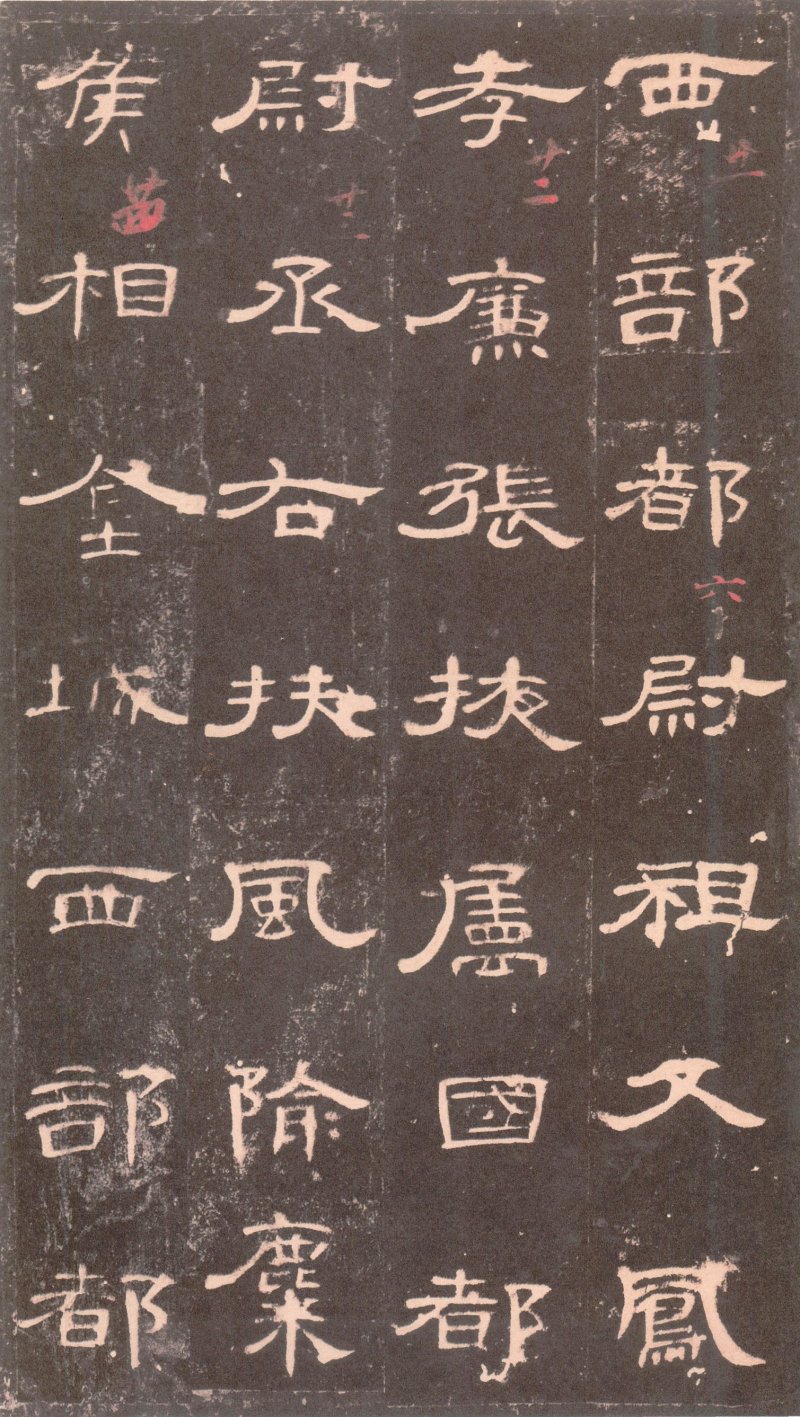 西部都尉祖父鳳
廿一
六
孝廉張掖屬國都
廿二
尉丞右扶風隃麋
廿三
侯相金城西部都
廿四